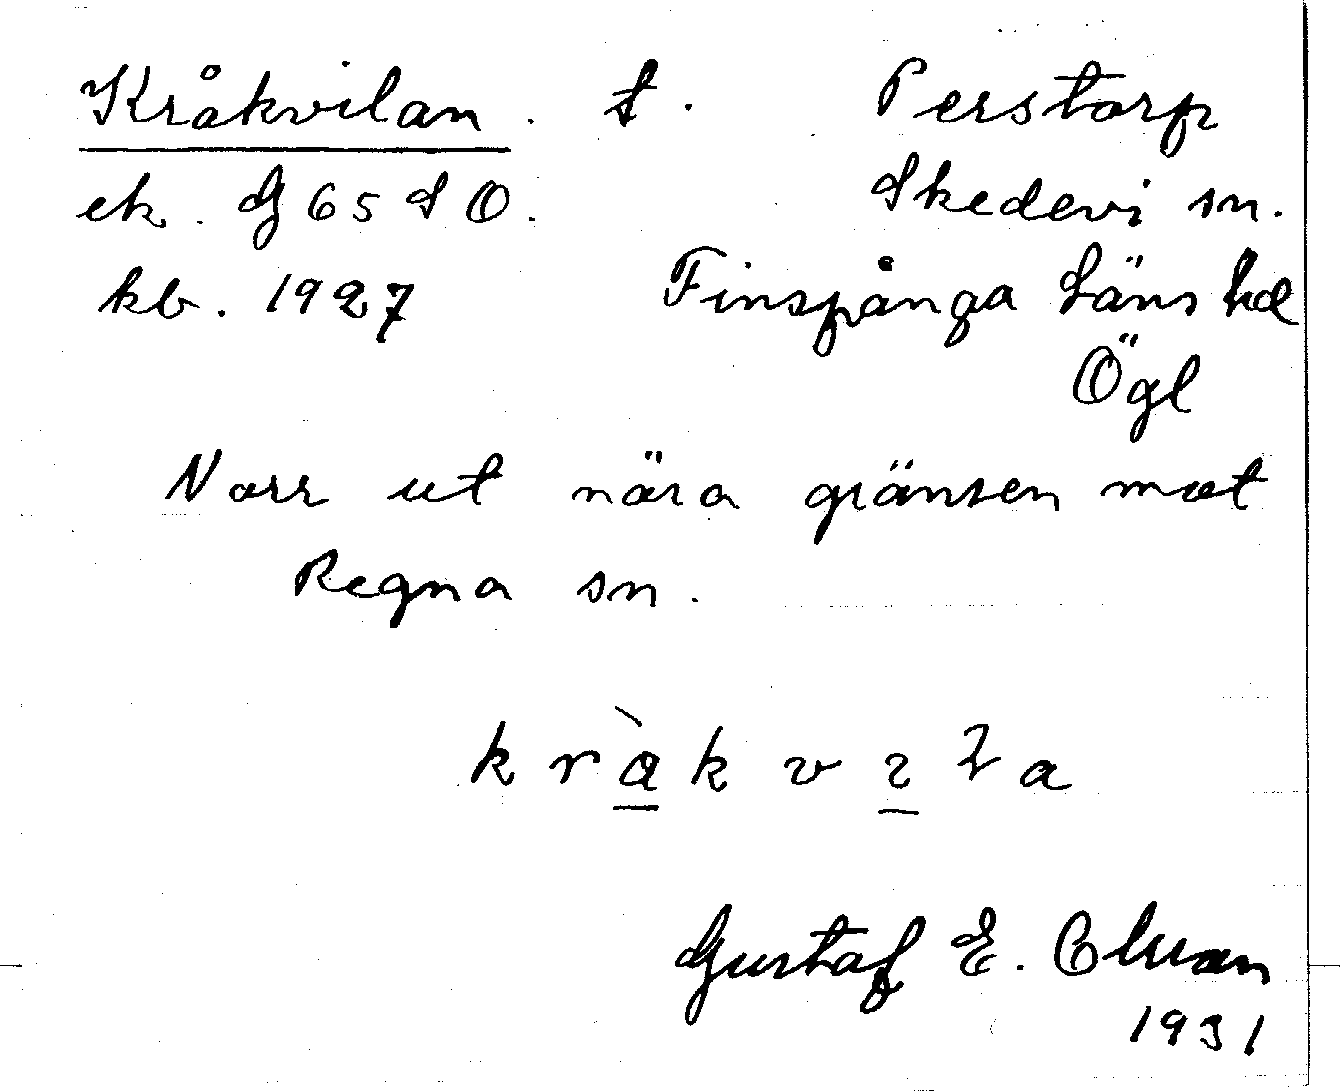 Kråkvilan. t. Perstorp
ek. G 65 S O. Skedevi sn.
kb. 1927 Finspånga läns hd
Ögl
Norr ut nära gränsen mot
Regna sn.
Gustaf E.
1931